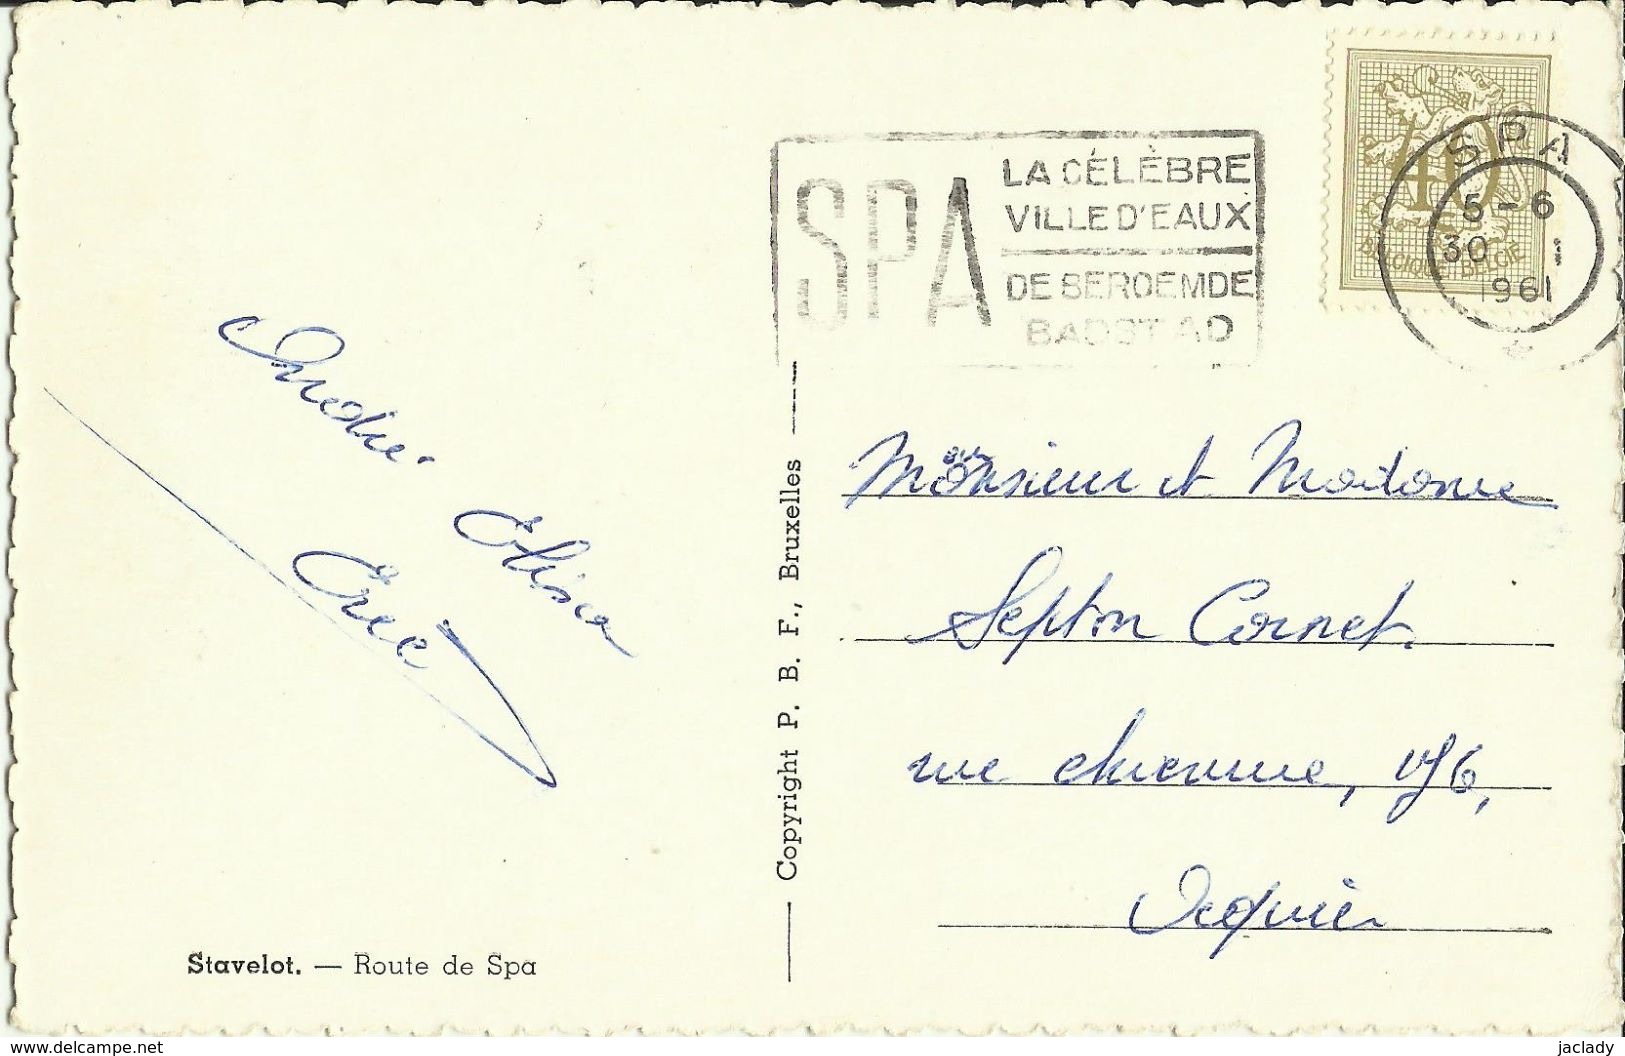 SPA
LA CÉLÈBRE
VILLE D'EAUX
DE BEROEMDE
BADSTAD
40
BELGIQUE BELGIË
SPA
5-6
30 I
1961
Andrée.
Elisa
Eric
Monsieur et Madame
Septon Cornet.
rue
Ocquier
Copyright P. B. F., Bruxelles
Stavelot. — Route de Spa
www.delcampe.net
jaclady